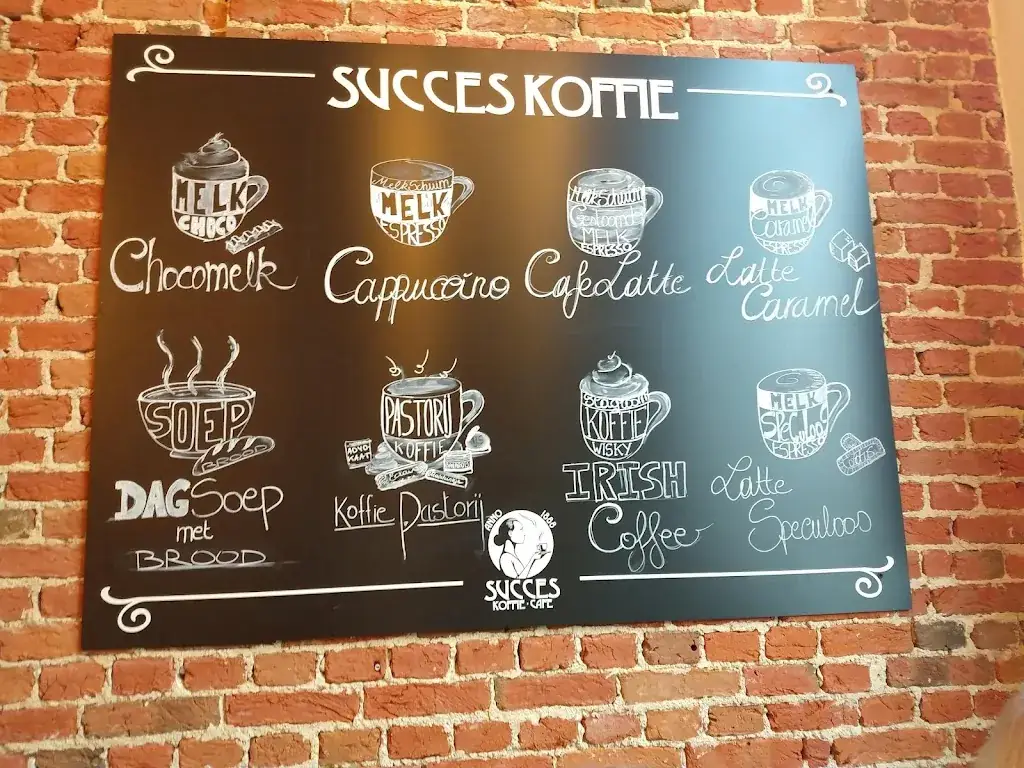 SUCCES KOFFIE
MELK
CHOCO
Chocomelk
Melkschuim
MELK
ESPRESSO
Cappuccino
Melkschuim
MELK
ESPRESSO
Cafe Latte
MELK
Caramel
ESPRESSO
Latte
Caramel
SOEP
BROOD
DAG Soep
met
BROOD
PASTORIJ
KOFFIE
ADVO
KAAT
Koffie Pastorij
KOFFIE
WISKY
IRISH
Coffee
MELK
Speculoos
ESPRESSO
Latte
Speculoos
ANNO 1868
SUCCES
KOFFIE · CAFE